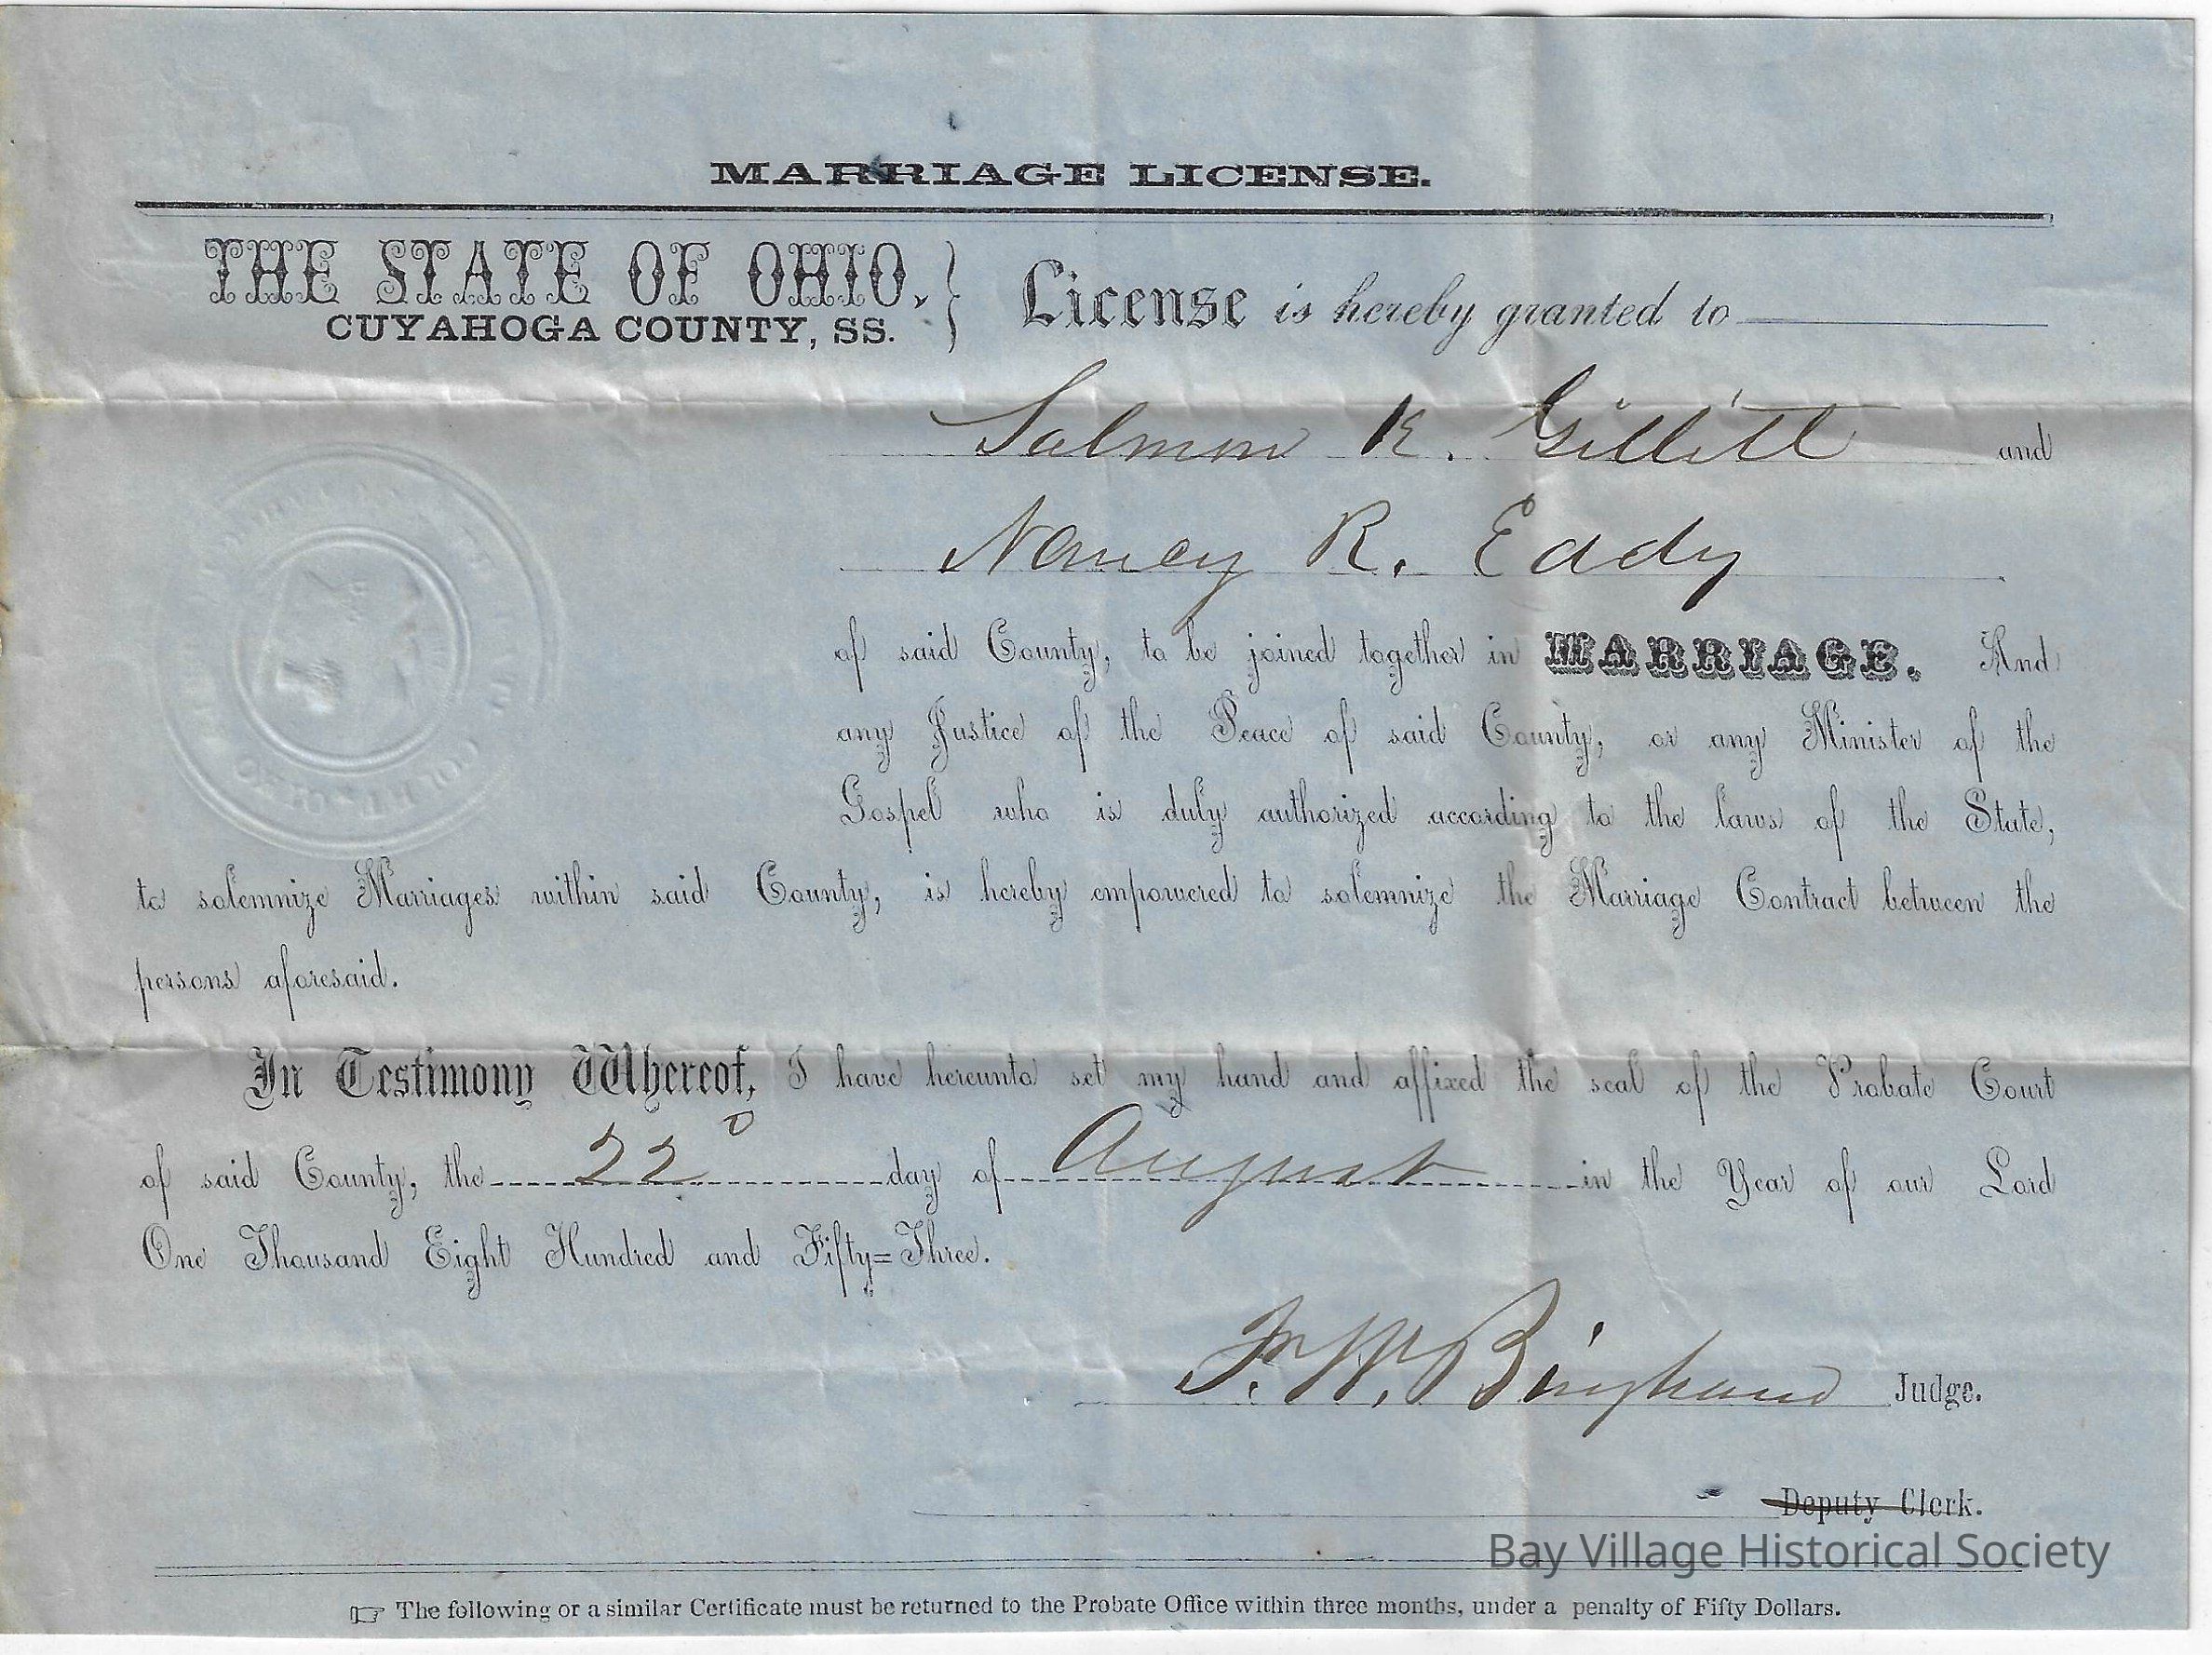 MARRIAGE LICENSE.
THE STATE OF OHIO,
CUYAHOGA COUNTY, SS.
License is hereby granted to
Salmon K. Gillett and
Nancy R. Eady
of said County, to be joined together in MARRIAGE. And
any Justice of the Peace of said County, or any Minister of the
Gospel who is duly authorized according to the laws of the State,
to solemnize Marriages within said County, is hereby empowered to solemnize the Marriage Contract between the
persons aforesaid.
In Testimony Whereof, I have hereunto set my hand and affixed the seal of the Probate Court
of said County, the 22d day of August in the Year of our Lord
One Thousand Eight Hundred and Fifty=Three.
F. W. Bingham Judge.
Deputy Clerk.
Bay Village Historical Society
☞ The following or a similar Certificate must be returned to the Probate Office within three months, under a penalty of Fifty Dollars.